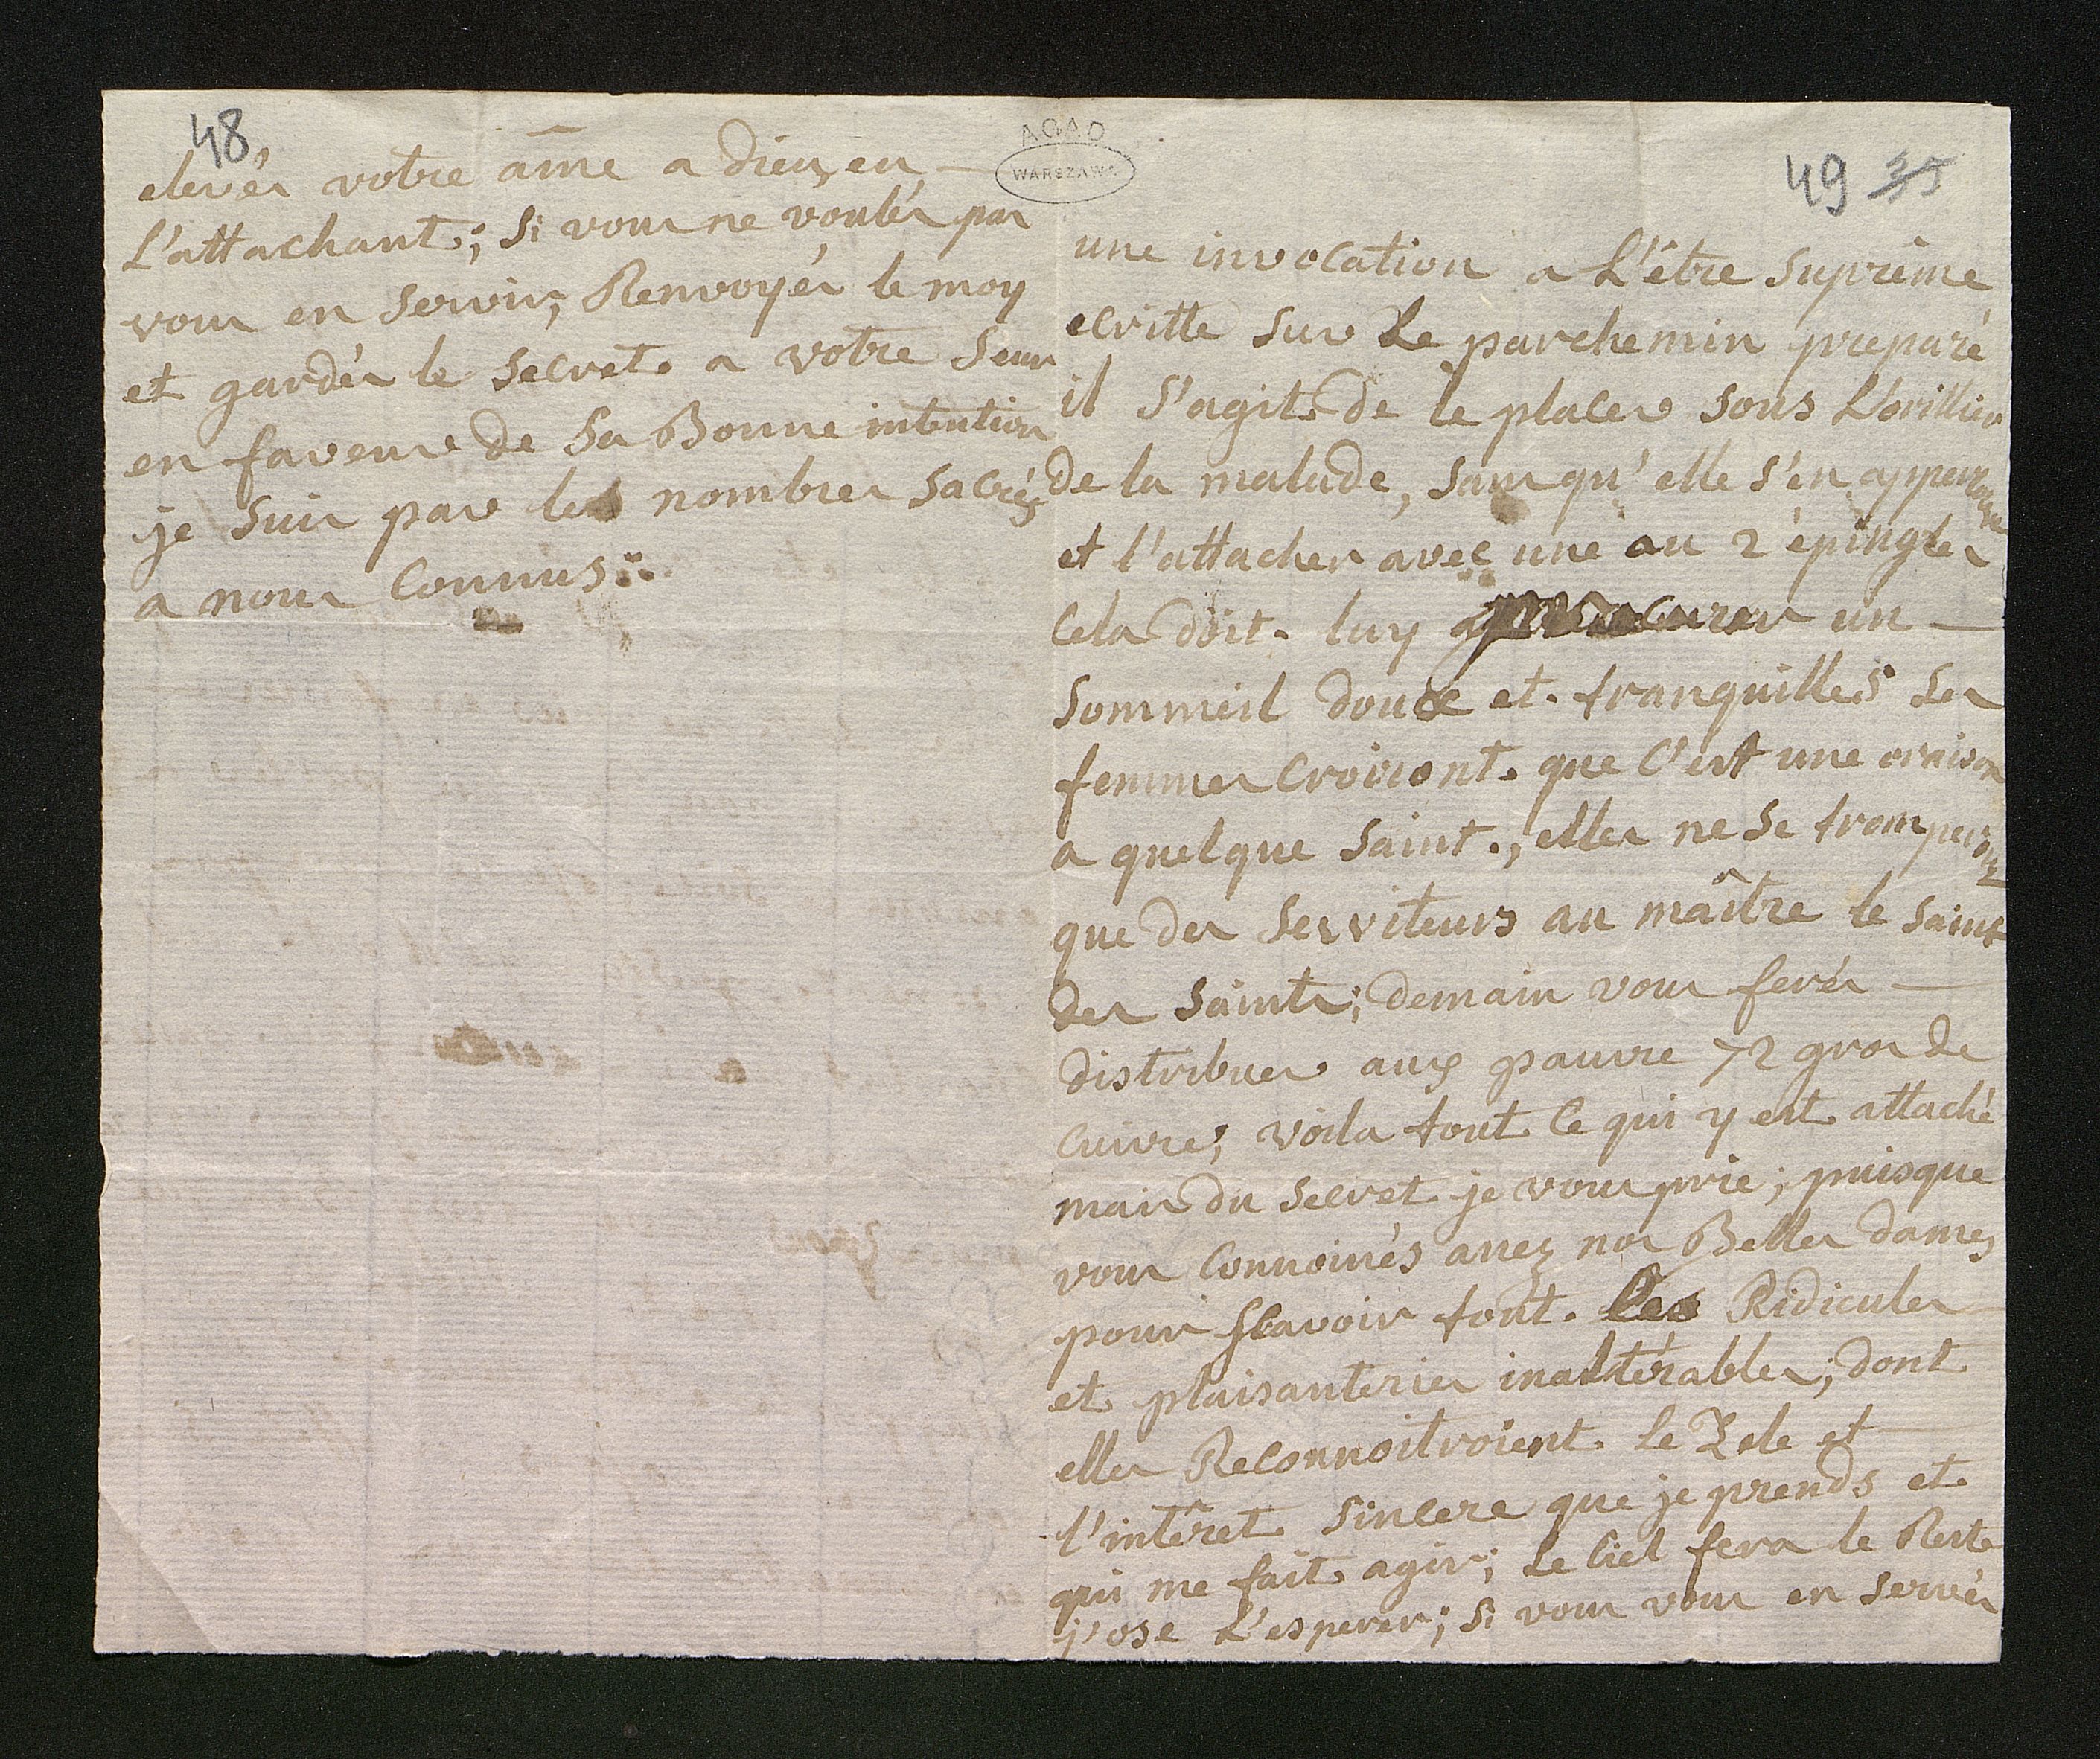 48
elevés votre âme a dieu, en —
L'attachant; Si vous ne voulés pas
vous en servir, Renvoyés le moy
et gardés le secret a votre Seur
en faveur de Sa Bonne intention
je suis par les nombres sacrés
a nous Connus:.
AGAD
WARSZAWA
49 35
une invocation a L'être suprême
ecritte sur Le parchemin preparé
il S'agit de le placer sous L'orillier
de la malade, sans qu'elle s'en apperçoive
et l'attacher avec une ou 2 épingles
Cela doit luy procurer un —
Sommeil doux et tranquilles Les
femmes Croiront que C'est une oraison
a quelque Saint., elles ne se tromperont
que des Serviteurs au maître le saint
des Saints; demain vous ferés —
distribuer aux pauvre 72 gros de
Cuivre; voila tout Ce qui y est attaché
mais du secret je vous prie; puisque
vous Connoissés assez nos Belles dames
pour sçavoir tout les Ridicules
et plaisanteries inaltérables; dont
elles Reconnoitroient Le Zele et —
l'intêret Sincere que je prends et
qui me fait agir; Le Ciel fera le Reste
j'ose L'esperer; Si vous vous en servés